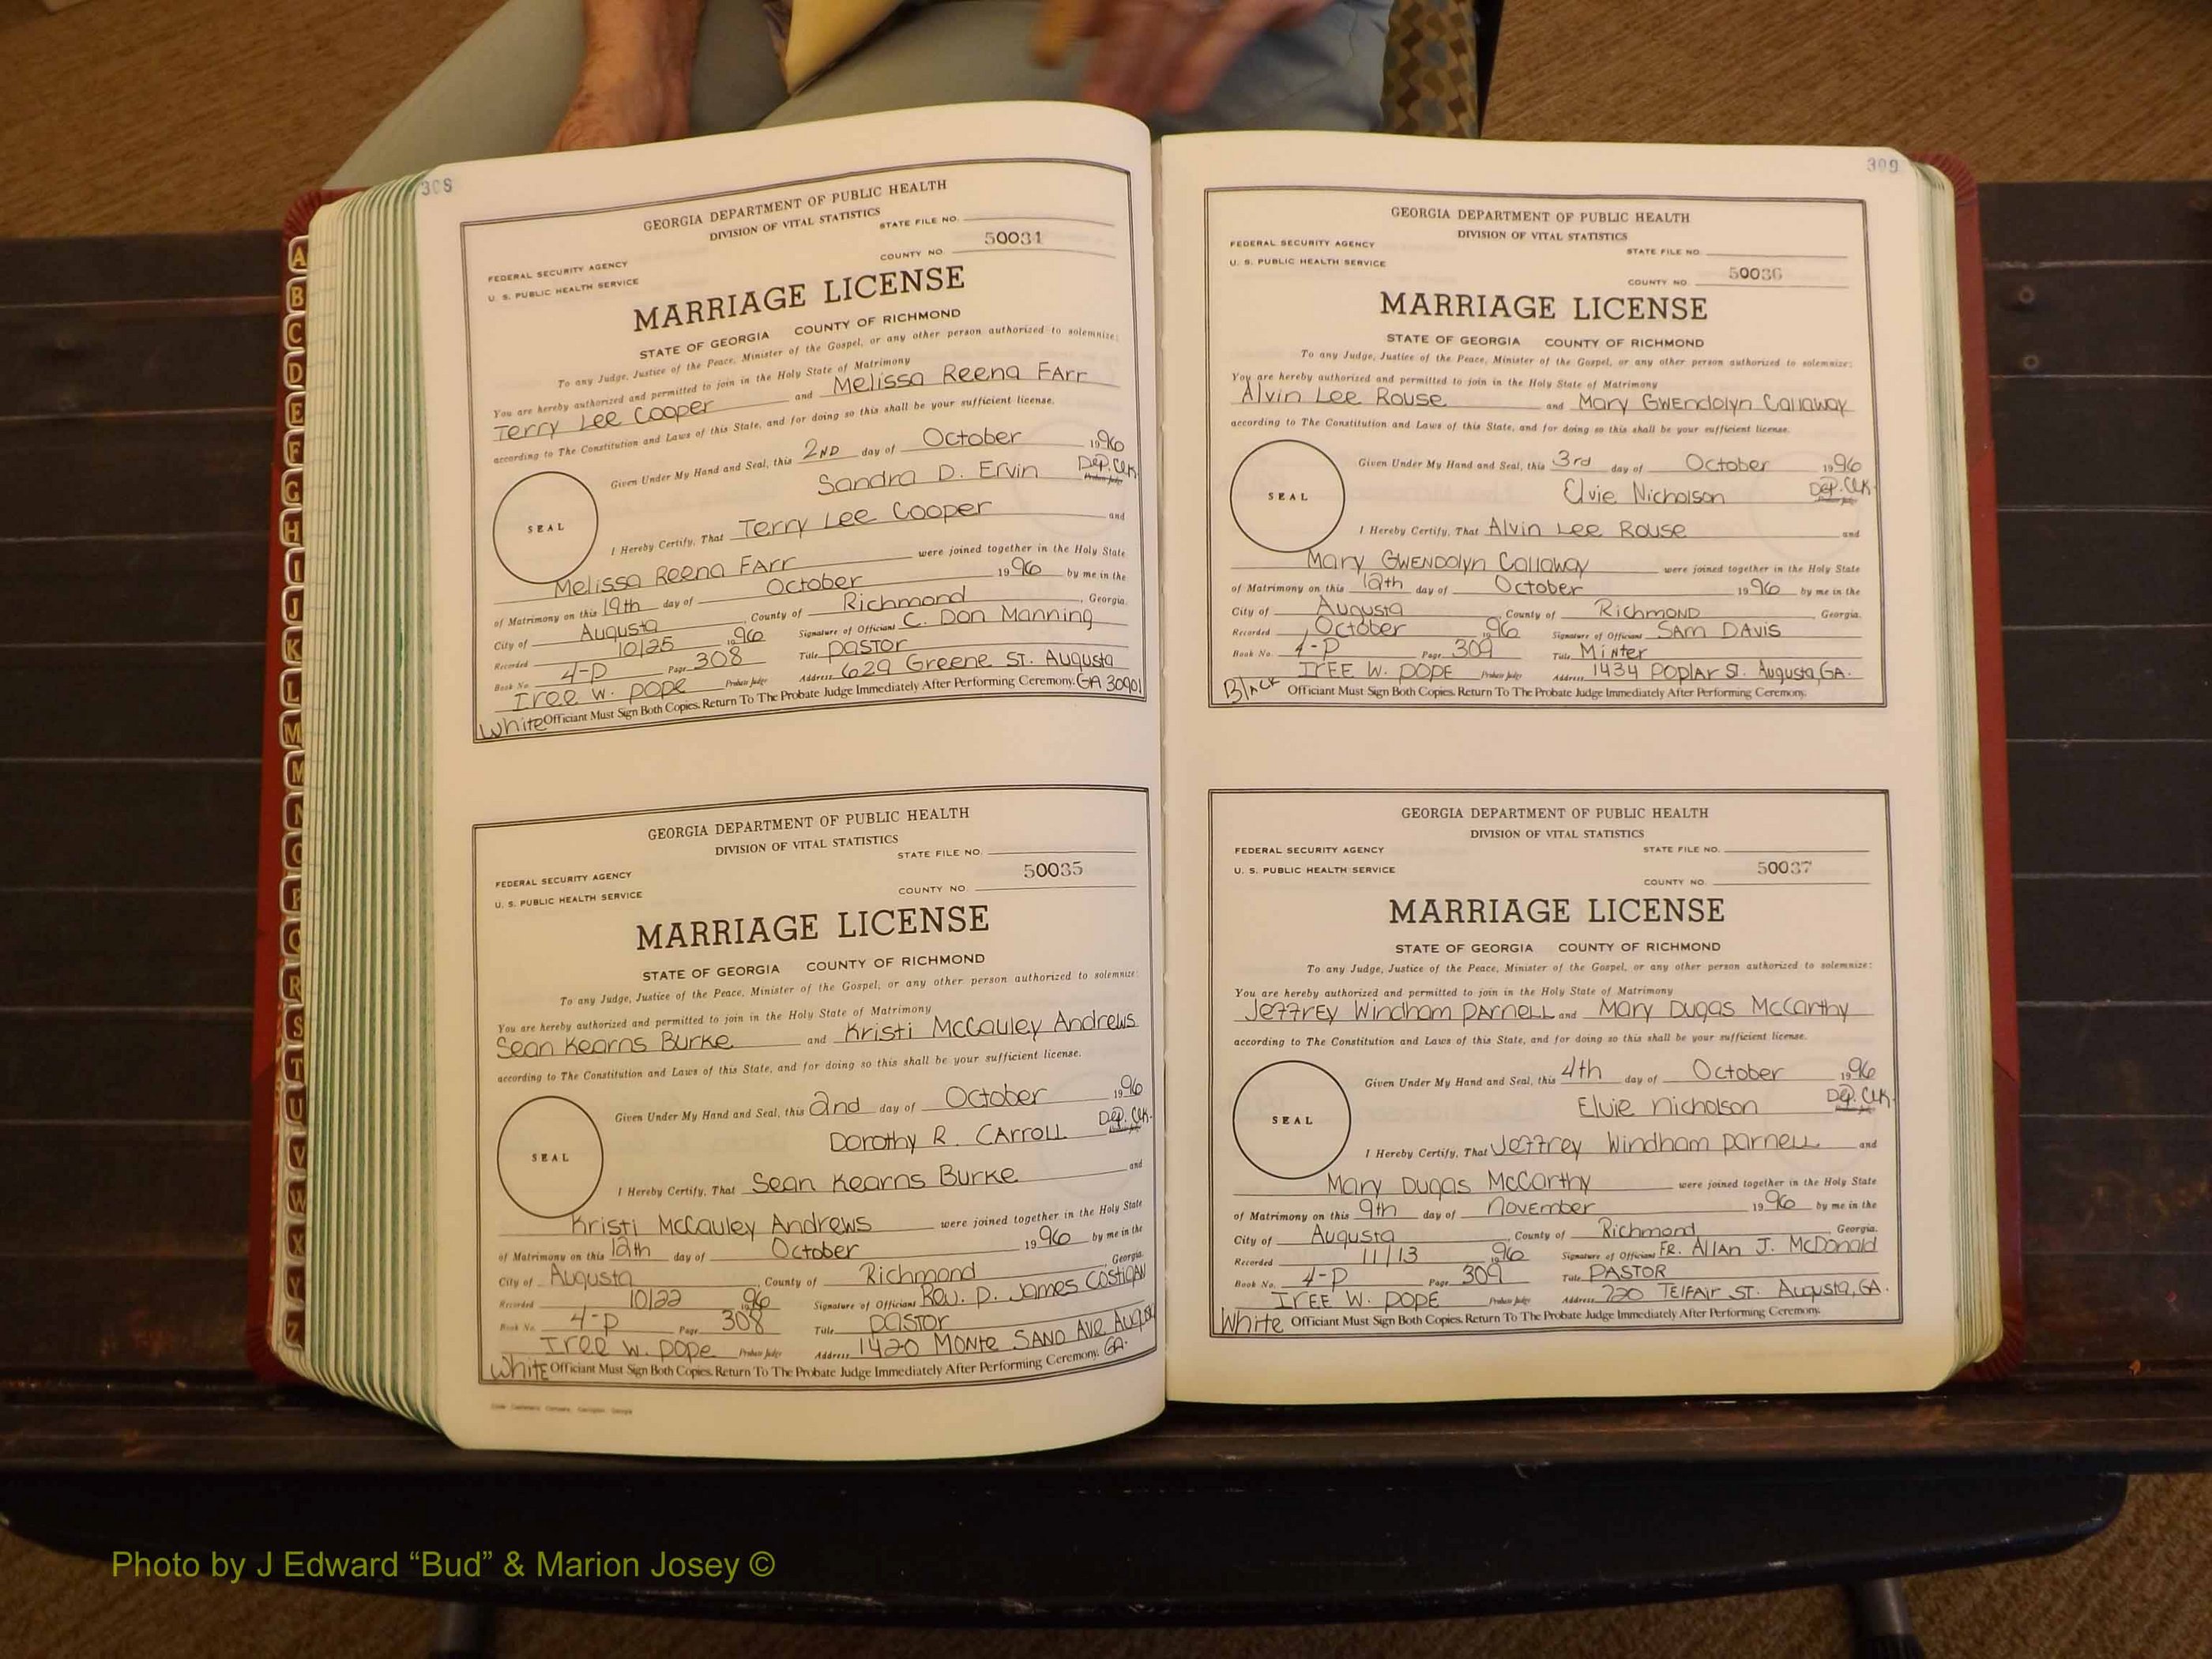 308
GEORGIA DEPARTMENT OF PUBLIC HEALTH
DIVISION OF VITAL STATISTICS
STATE FILE NO.
50034
FEDERAL SECURITY AGENCY
COUNTY NO.
U. S. PUBLIC HEALTH SERVICE
MARRIAGE LICENSE
STATE OF GEORGIA COUNTY OF RICHMOND
To any Judge, Justice of the Peace, Minister of the Gospel, or any other person authorized to solemnize:
You are hereby authorized and permitted to join in the Holy State of Matrimony
Terry Lee Cooper and Melissa Reena FArr
according to The Constitution and Laws of this State, and for doing so this shall be your sufficient license.
Given Under My Hand and Seal, this 2ND day of October 1996
Sandra D. Ervin Dep. Clk
Probate Judge
SEAL
I Hereby Certify, That Terry Lee Cooper and
Melissa Reena FArr were joined together in the Holy State
of Matrimony on this 19th day of October 1996 by me in the
City of Augusta, County of Richmond, Georgia.
Recorded 10/25 1996 Signature of Officiant C. Don Manning
Book No. 4-P Page 308 Title Pastor
Iree W. Pope Probate Judge Address 629 Greene ST. Augusta
White Officiant Must Sign Both Copies. Return To The Probate Judge Immediately After Performing Ceremony. GA 30901
GEORGIA DEPARTMENT OF PUBLIC HEALTH
DIVISION OF VITAL STATISTICS
STATE FILE NO.
50035
FEDERAL SECURITY AGENCY
COUNTY NO.
U. S. PUBLIC HEALTH SERVICE
MARRIAGE LICENSE
STATE OF GEORGIA COUNTY OF RICHMOND
To any Judge, Justice of the Peace, Minister of the Gospel, or any other person authorized to solemnize:
You are hereby authorized and permitted to join in the Holy State of Matrimony
Sean Kearns Burke and Kristi McCauley Andrews
according to The Constitution and Laws of this State, and for doing so this shall be your sufficient license.
Given Under My Hand and Seal, this 2nd day of October 1996
Dorothy R. CArroll Dep. Clk.
Probate Judge
SEAL
I Hereby Certify, That Sean Kearns Burke and
Kristi McCauley Andrews were joined together in the Holy State
of Matrimony on this 12th day of October 1996 by me in the
City of Augusta, County of Richmond Georgia.
Recorded 10/22 1996 Signature of Officiant Rev. P. James Costigan
Book No. 4-P Page 308 Title Pastor
Iree W. Pope Probate Judge Address 1420 Monte SAno Ave Augusta
White Officiant Must Sign Both Copies. Return To The Probate Judge Immediately After Performing Ceremony. GA.
309
GEORGIA DEPARTMENT OF PUBLIC HEALTH
DIVISION OF VITAL STATISTICS
FEDERAL SECURITY AGENCY
STATE FILE NO.
U. S. PUBLIC HEALTH SERVICE
50036
COUNTY NO.
MARRIAGE LICENSE
STATE OF GEORGIA COUNTY OF RICHMOND
To any Judge, Justice of the Peace, Minister of the Gospel, or any other person authorized to solemnize:
You are hereby authorized and permitted to join in the Holy State of Matrimony
Alvin Lee Rouse and Mary Gwendolyn Callaway
according to The Constitution and Laws of this State, and for doing so this shall be your sufficient license.
Given Under My Hand and Seal, this 3rd day of October 1996
Elvie Nicholson Dep. Clk.
Probate Judge
SEAL
I Hereby Certify, That Alvin Lee Rouse and
Mary Gwendolyn Callaway were joined together in the Holy State
of Matrimony on this 12th day of October 1996 by me in the
City of Augusta, County of Richmond, Georgia.
Recorded October 1996 Signature of Officiant SAm DAvis
Book No. 4-P Page 309 Title Minter
Iree W. Pope Probate Judge Address 1434 Poplar St. Augusta, GA.
Black Officiant Must Sign Both Copies. Return To The Probate Judge Immediately After Performing Ceremony.
GEORGIA DEPARTMENT OF PUBLIC HEALTH
DIVISION OF VITAL STATISTICS
FEDERAL SECURITY AGENCY
STATE FILE NO.
U. S. PUBLIC HEALTH SERVICE
50037
COUNTY NO.
MARRIAGE LICENSE
STATE OF GEORGIA COUNTY OF RICHMOND
To any Judge, Justice of the Peace, Minister of the Gospel, or any other person authorized to solemnize:
You are hereby authorized and permitted to join in the Holy State of Matrimony
Jeffrey Windham Parnell and Mary Dugas McCarthy
according to The Constitution and Laws of this State, and for doing so this shall be your sufficient license.
Given Under My Hand and Seal, this 4th day of October 1996
Elvie Nicholson Dep. Clk.
Probate Judge
SEAL
I Hereby Certify, That Jeffrey Windham Parnell and
Mary Dugas McCarthy were joined together in the Holy State
of Matrimony on this 9th day of November 1996 by me in the
City of Augusta, County of Richmond Georgia.
Recorded 11/13 1996 Signature of Officiant FR. AllAn J. McDonald
Book No. 4-P Page 309 Title PASTOR
Iree W. Pope Probate Judge Address 720 TelfAir ST. Augusta, GA.
White Officiant Must Sign Both Copies. Return To The Probate Judge Immediately After Performing Ceremony.
A
B
C
D
E
F
G
H
I
J
K
L
M
M
N
O
P
Q
R
S
T
U
V
W
X
Y
Z
Photo by J Edward “Bud” & Marion Josey ©